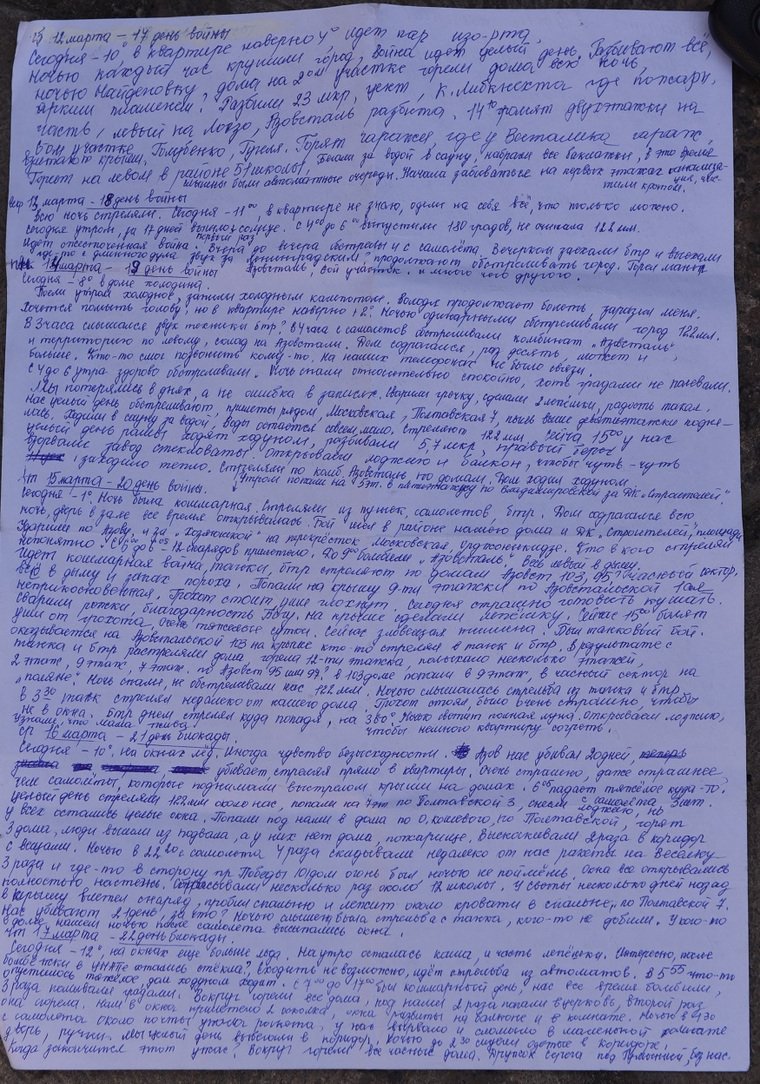 сб 12 марта - 17 день войны
Сегодня -10°, в квартире наверно 4° идёт пар изо рта,
Ночью каждый час крушили город, война идёт целый день. Разбивают всё,
ночью Найденовку, дома на 2ом участке горели дома всю ночь,
ярким пламенем. Разбили 23 мкр, центр, К. Либкнехта где пожарн.
часть, левый на Азовсталь разбита. 14⁰⁰ двухэтажки на
5ом участке Голубенко, Гугеля. Горят гаражи, где у Виталика гараж,
взлетают крыши.
Горят на левом в районе 51 школы, Бегали за водой в сауну, набрали все баклажки, в это время
слышны были автоматные очереди. Начала забиваться на первых этажах канализа-
ция, чис-
тили кротом.
13 марта - 18 день войны
всю ночь стреляли. Сегодня -11⁰⁰, в квартире не знаю, одели на себя всё, что только можно.
Сегодня утром, за 17 дней вышло солнце. С 4⁰⁰ до 6⁰⁰ выпустили 180 градов, не считая 122 мл.
первый раз
Идёт ожесточенная война. Вчера до вечера обстреливали с самолёта. Вечером заехали бтр и выехали
где-то с длинного дула звук за Ленинградским? продолжают обстреливать город. Горел магаз.
пн 14 марта - 19 день войны Азовсталь, 5ой участок. и много чего другого.
Сегодня -8° в доме холодина.
Поели утром холодное, запили холодным кампотом. Володя продолжает болеть, заразил меня.
Хочется помыть голову, но в квартире наверно +2°. Ночью одинарными обстреливали город 122 мл.
В 3 часа слышался звук техники бтр? в 4 часа с самолётов обстреливали комбинат "Азовсталь"
и территорию по левому, склад на Азовстали. Дом содрагался, раз десять, может и
больше. Кто-то смог позвонить кому-то. На наших телефонах не было связи.
С 4 до 6 утра здорово обстреливали. Ночь спали относительно спокойно, хоть градами не поливали.
Мы потерялись в днях, а не ошибка в записях. Сварили гречку, сделали 2 лепёшки, радость такая.
Нас целый день обстреливают, прилёты рядом, Московская, Полтавская 7,
лась. Ходили в сауну за водой, воды остаётся совсем мало. Стреляют 122 мл сейча 15⁰⁰ у нас
целый день рамы ходят ходуном, разбивали 5,7 мкр, правый берег
взорвали завод стекловаты. Открываем лоджию и балкон, чтобы чуть-чуть
заходило тепло. Стреляли по комб. Азовсталь по домам. Дом ходил ходуном.
вт 15 марта - 20 день войны.
Сегодня -1°. Ночь была кошмарная. Стреляли из пушек, самолётов, бтр. Дом содрагался всю
ночь, дверь в зале всё время открывалась. Бой шёл в районе нашего дома и ДК "Строителей", площади
на перекрёсток Московская, Орджоникидзе. Кто в кого стрелял
непонятно. С 5 до 6 - 12 снарядов прилетело. До 9 бомбили "Азовсталь". Весь левый в дыму.
Идёт кошмарная война, танки, бтр стреляют по домам Азовст 103, 95, частный сектор,
всё в дыму и запах пороха. Попали на крышу 9ти этажки по Азовстальской
Грохот стоит, уши глохнут. Сегодня страшно готовить кушать.
сварили рожки, благодарность Богу, на крышке сделали лепёшку. Сейчас 15⁰⁰ болят
уши от грохота, очень тяжёлые сутки. Сейчас зловещая тишина. Был танковый бой.
оказывается на Азовстальской 103 на крышке кто-то стрелял в танк и бтр. В результате с
танка и бтр расстреляли дома, горела 12-ти этажка, полыхало несколько этажей,
2 этаж, 9 этаж, 7 этаж. по Азовст 95 или 97? в 103 доме попали в 9 этаж, в часный сектор на
"поляне". Ночь спали, не обстреливали нас 122 мл. Ночью слышалась стрельба из танка и бтр
в 3³⁰ танк стрелял недалеко от нашего дома. Грохот стоял, было очень страшно, чтобы
не в окна. Бтр днём стрелял куда попадя, на 360°. Ночью светит полная луна. Открываем лоджию,
чтобы немного квартиру согреть.
Узнали, что мама жива!
ср 16 марта - 21 день блокады.
Сегодня -10°, на окнах лёд. Иногда чувство безысходности. Азов нас убивал 20 дней,
убивает, стреляя прямо в квартиры. Очень страшно, даже страшнее,
чем самолёты, которые поднимали выстрелом крыши на домах. 6⁰⁰ падает тяжёлое куда-то.
Целый день стреляли 122 мм около нас, попали на 7 эт по Полтавской 3, снесли лоджию, но
у всех остались целые окна. Попали под нами в дома по О. Кошевого, по Полтавской, горят
3 дома, люди вышли из подвала, а у них нет дома, пожарище. Выскакивали 2 раза в коридор
с вещами. Ночью в 22²⁰ с самолёта 4 раза скидывали недалеко от нас ракеты на Веселку
3 раза и где-то в сторону пр. Победы 101 дом огонь был ночью не поймёшь. Окна все открывались
полностью настежь. Сбрасывали несколько раз около 12 школы. У Светы несколько дней назад
в крышу влетел снаряд, пробил спальню и лежит около кровати в спальне, по Полтавской 7.
Нас убивают 21 день, за что? Ночью слышен была стрельба с танка, кого-то не добили. У кого-то
в доме нашем ночью после самолёта высыпались окна.
чт 17 марта - 22 день блокады.
Сегодня -12°, на окнах ещё больше льда. На утро осталась каша, и часть лепёшки. Интересно,
остались стёкла? выходить не возможно, идёт стрельба из автоматов. В 5⁵⁵ что-то
опустилось тяжёлое, дом ходуном ходит. С 7⁰⁰ до 17⁰⁰ был кошмарный день, нас всё время бомбили,
3 раза поливали градами. Вокруг горели все дома, под нами 2 раза попали в церковь, второй раз
она горела. Нам в окна прилетело 2 осколка, окна разбиты на балконе и в комнате. Ночью в 9³⁰
с самолёта около почты упала ракета. у нас вырвало и сломило в маленькой комнате
дверь, ручки. Мы целый день выбегали в коридор, ночью до 2³⁰ сидели одетые в коридоре.
Когда закончится этот ужас? Вокруг горели все часные дома.